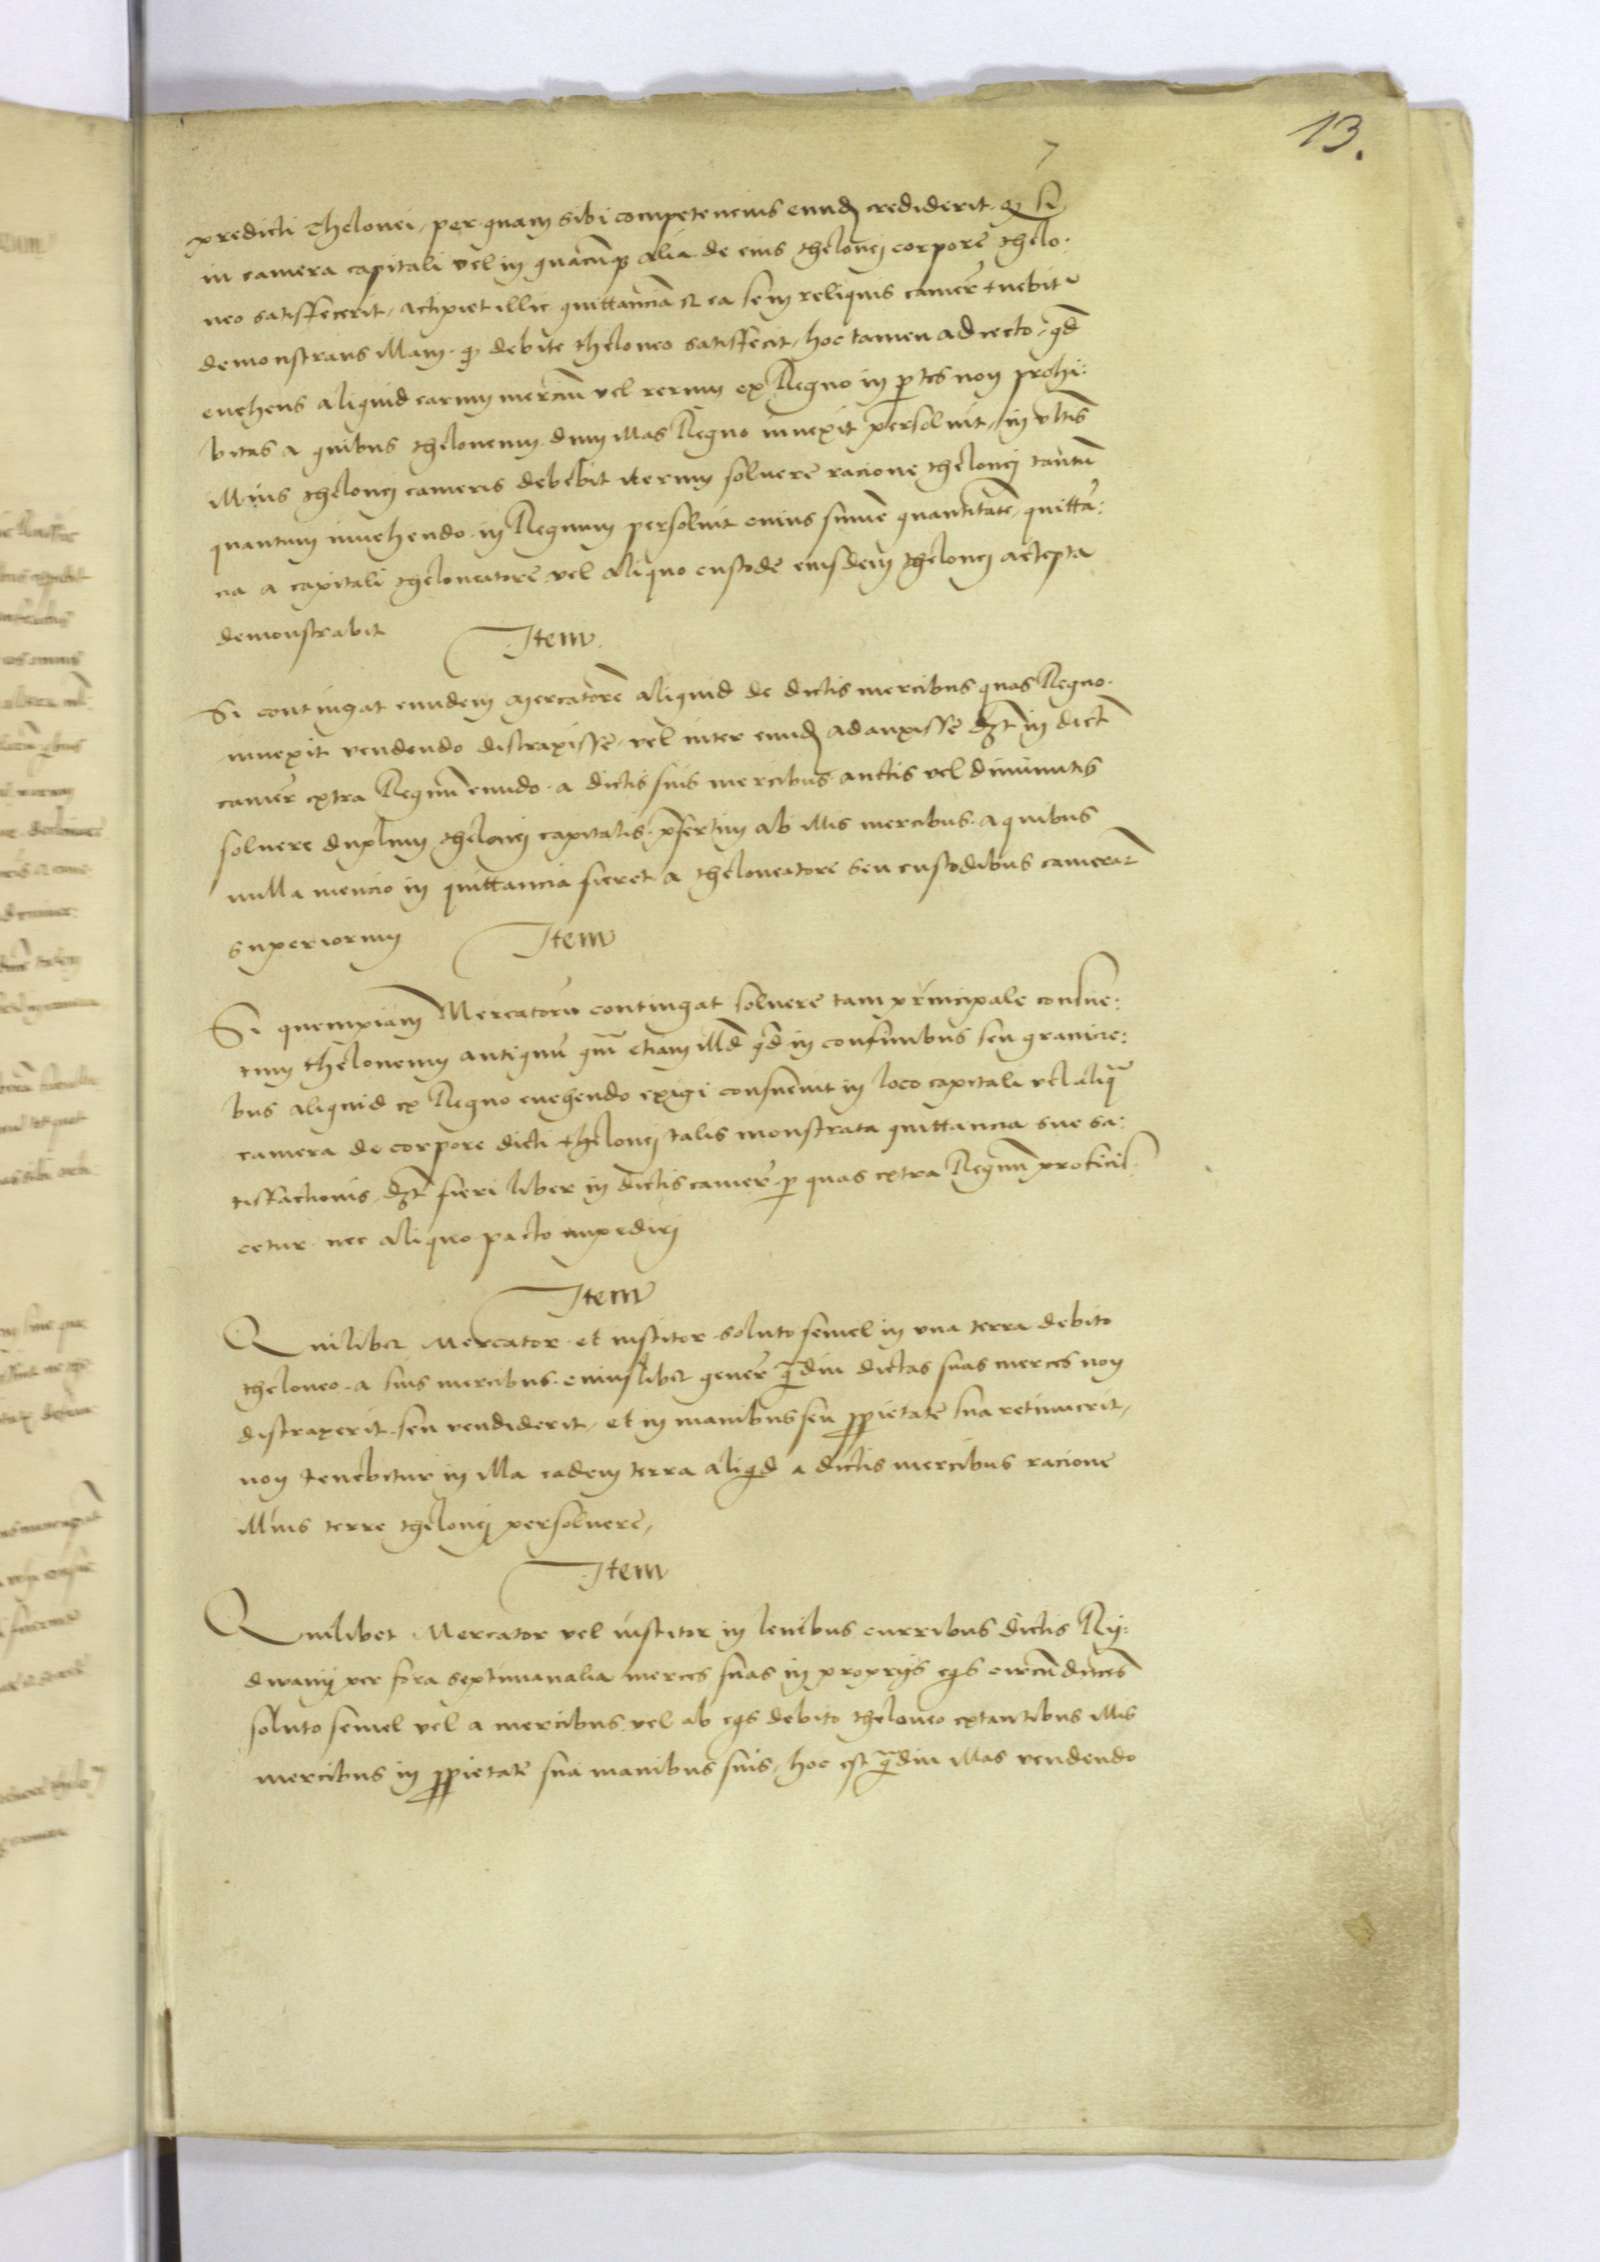 13.
7
predicti Thelonei, per quam sibi competencius eund crediderit. Et si
in camera capitali vel in quacunq alia de eius thelonei corpore thelo:
neo satisfecerit, accipiet illic quittanciã et ea se in reliquis camer
demonstrans illam. q debite theloneo satisfecit, hoc tamen adiecto, qd
evehens aliquid earum merciũ vel rerum ex Regno in ptes non prohi:
bitas a quibus theloneum dum illas Regno invexit persolvit, in
illius thelonei cameris debebit iterum solvere racione thelonei tantũ
quantum invehendo in Regnum persolvit cuius sume quantitatẽ, quittã:
cia a capitali theloneatore vel aliquo custode eiusdem thelonei accepta
demonstrabit Item
Si contingat eundem mercatorẽ aliquid de dictis mercibus quas Regno
invexit vendendo distraxisse, vel inter eund adauxisse in dict
camer extra Regnũ eundo a dictis suis mercibus auctis vel diminutis
solvere duplum thelonei capitalis, psertim ab illis mercibus a quibus
nulla mencio in quittancia fieret a theloneatore seu custodibus camerar
superiorum Item
Si quempiam Mercatorũ contingat solvere tam principale consue:
tum theloneum antiquũ qm etiam illd qd in confinibus seu granicie:
bus aliquid ex Regno evehendo exigi consuevit in loco capitali vel aliq
camera de corpore dicti thelonei talis monstrata quittancia sue sa:
tisfactionis, fieri liber in dictis camer p quas extra Regnũ proficis:
cetur nec aliquo pacto impediri
Item
Quilibet Mercator et institor soluto semel in una terra debito
theloneo a suis mercibus cuiuslibet gener qdiu dictas suas merces non
distraxerit seu vendiderit, et in manibus seu ppietate sua retinuerit,
non tenebitur in illa eadem terra aliqd a dictis mercibus racione
illius terre thelonei persolvere,
Item
Quilibet Mercator vel institor in levibus curribus dictis Ry:
dwany per fora septimanalia merces suas in propriis eqs circũducẽs
soluto semel vel a mercibus vel ab eqs debito theloneo extantibus illis
mercibus in ppietate sua manibus suis, hoc est qdiu illas vendendo